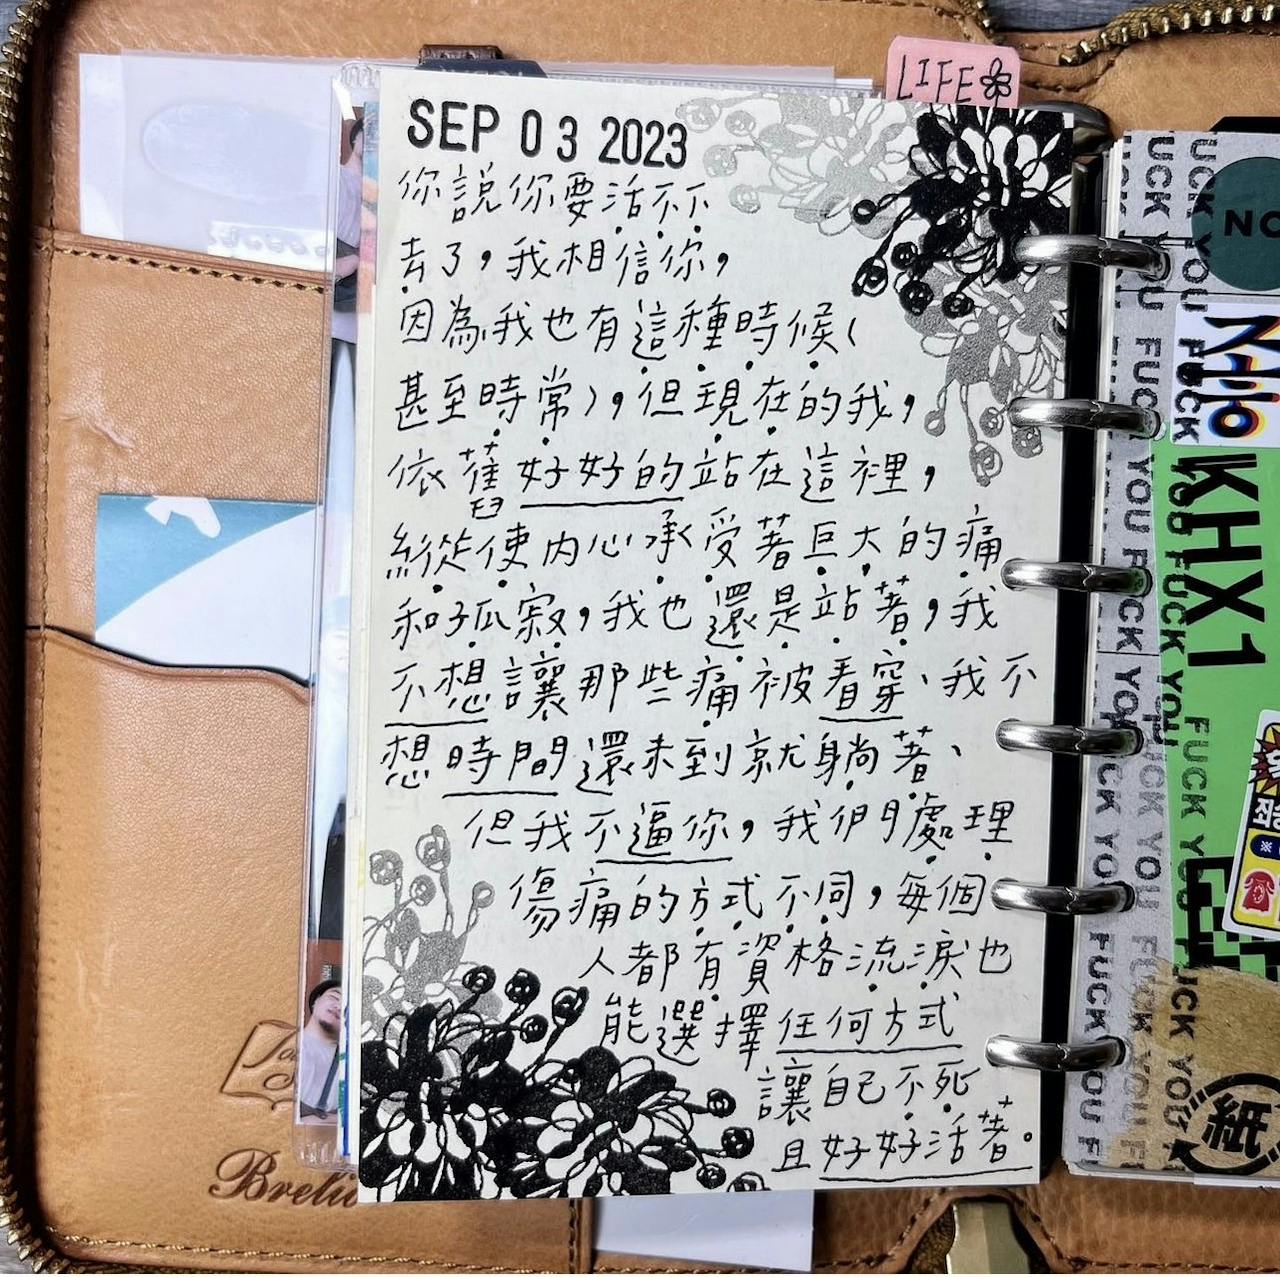 LIFE
SEP 03 2023
你説你要活不下
去了，我相信你，
因為我也有這種時候（
甚至時常），但現在的我，
依舊好好的站在這裡，
縱使内心承受著巨大的痛
和孤寂，我也還是站著，我
不想讓那些痛被看穿、我不
想時間還未到就躺著、
但我不逼你，我們處理
傷痛的方式不同，每個
人都有資格流淚也
能選擇任何方式
讓自己不死
且好好活著。
Bretia
NO
KHX1
FUCK YOU FUCK YOU FUCK YOU
紙